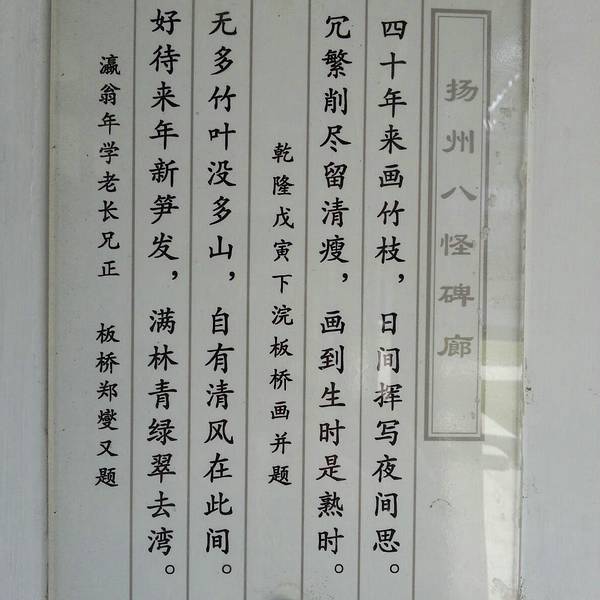 扬州八怪碑廊
四十年来画竹枝，日间挥写夜间思。
冗繁削尽留清瘦，画到生时是熟时。
乾隆戊寅下浣板桥画并题
无多竹叶没多山，自有清风在此间。
好待来年新笋发，满林青绿翠去湾。
瀛翁年学老长兄正 板桥郑燮又题